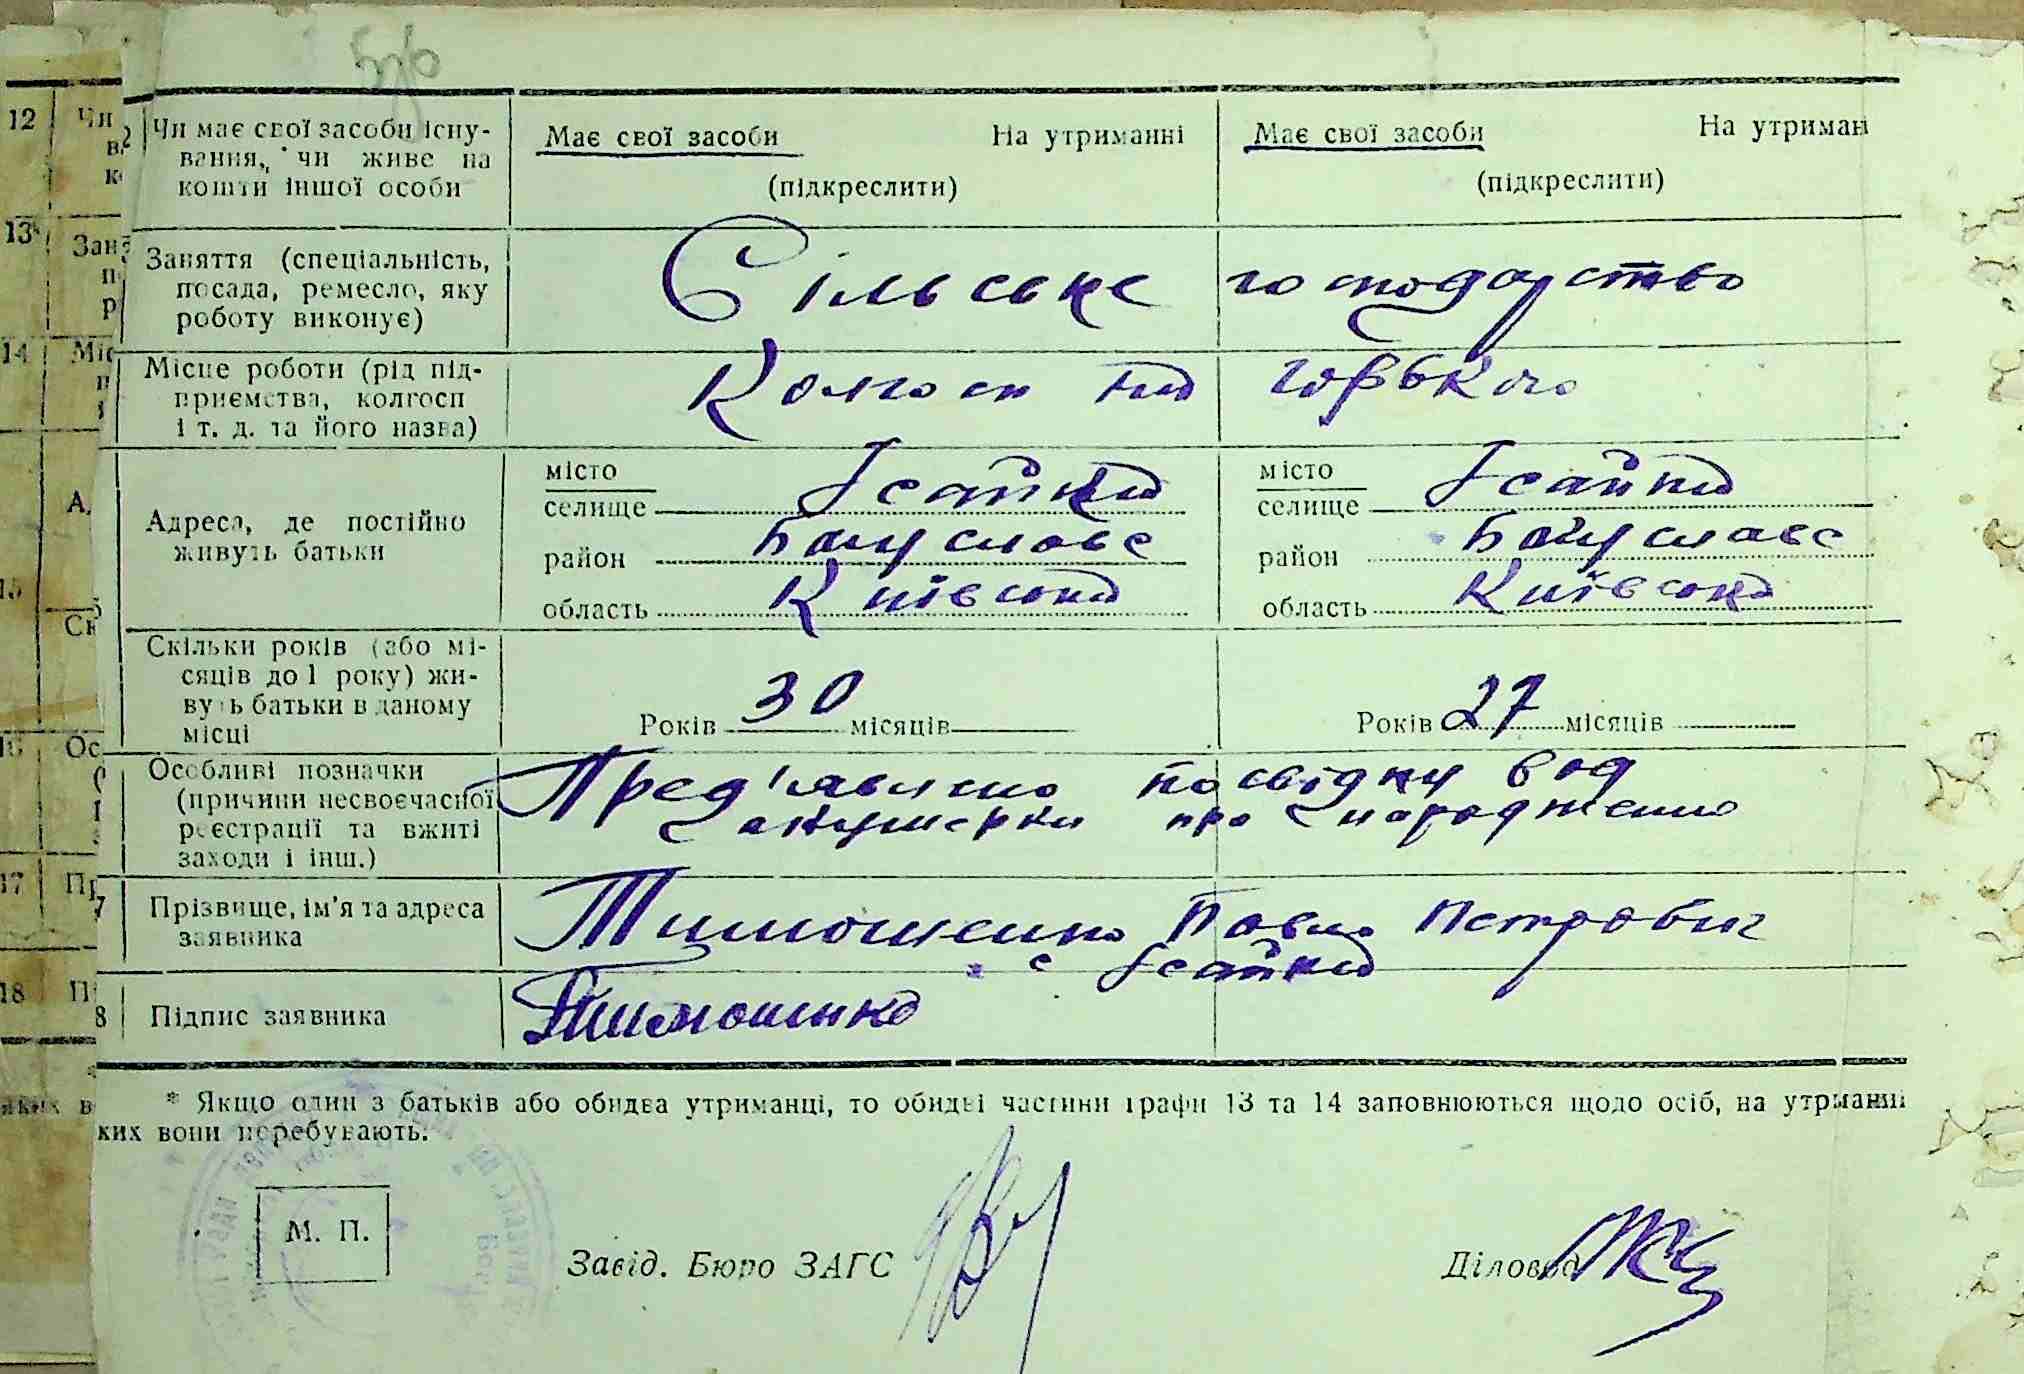 б/о
12 Чи має свої засоби існу- Має свої засоби На утриманні Має свої засоби На утриман
вання, чи живе на
кошти іншої особи (підкреслити) (підкреслити)
13 Заняття (спеціальність,
посада, ремесло, яку Сільське господарство
роботу виконує)
14 Місце роботи (рід під-
приємства, колгосп Колгосп ім Горького
і т. д. та його назва)
місто Ісайки місто Ісайки
селище селище
Адреса, де постійно район Богуславс район Богуславс
живуть батьки
область Київська область Київська
15 Скільки років (або мі-
сяців до 1 року) жи-
вуть батьки в даному
місці Років 30 місяців Років 27 місяців
16 Особливі позначки Пред'явлено посвідку вод
(причини несвоєчасної
реєстрації та вжиті акушерки про народження
заходи і інш.)
17 Прізвище, ім'я та адреса Тимошенко Павло Петрович
заявника с Ісайки
18 Підпис заявника Тимошенко
* Якщо один з батьків або обидва утриманці, то обидві частини графи 13 та 14 заповнюються щодо осіб, на утрманні
ких вони перебувають.
М. П.
Завід. Бюро ЗАГС Діловод